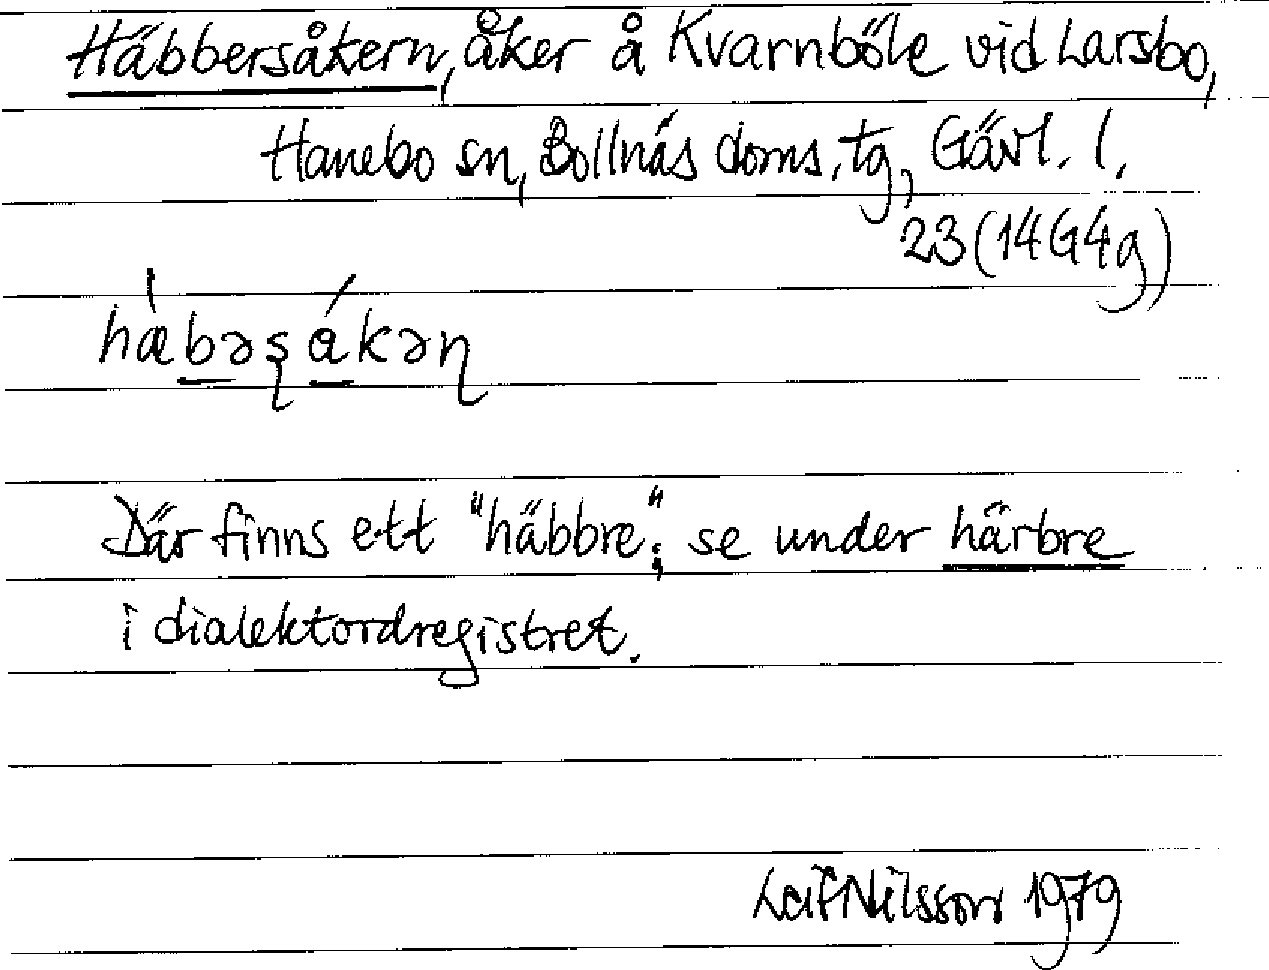 Häbbersåkern, åker å Kvarnböle vid Larsbo,
Hanebo sn, Bollnäs doms. tg, Gävl. l.
23 (14G4g)
hæbəʂåkəɳ
Där finns ett "häbbre"; se under härbre
i dialektordregistret.
Leif Nilsson 1979